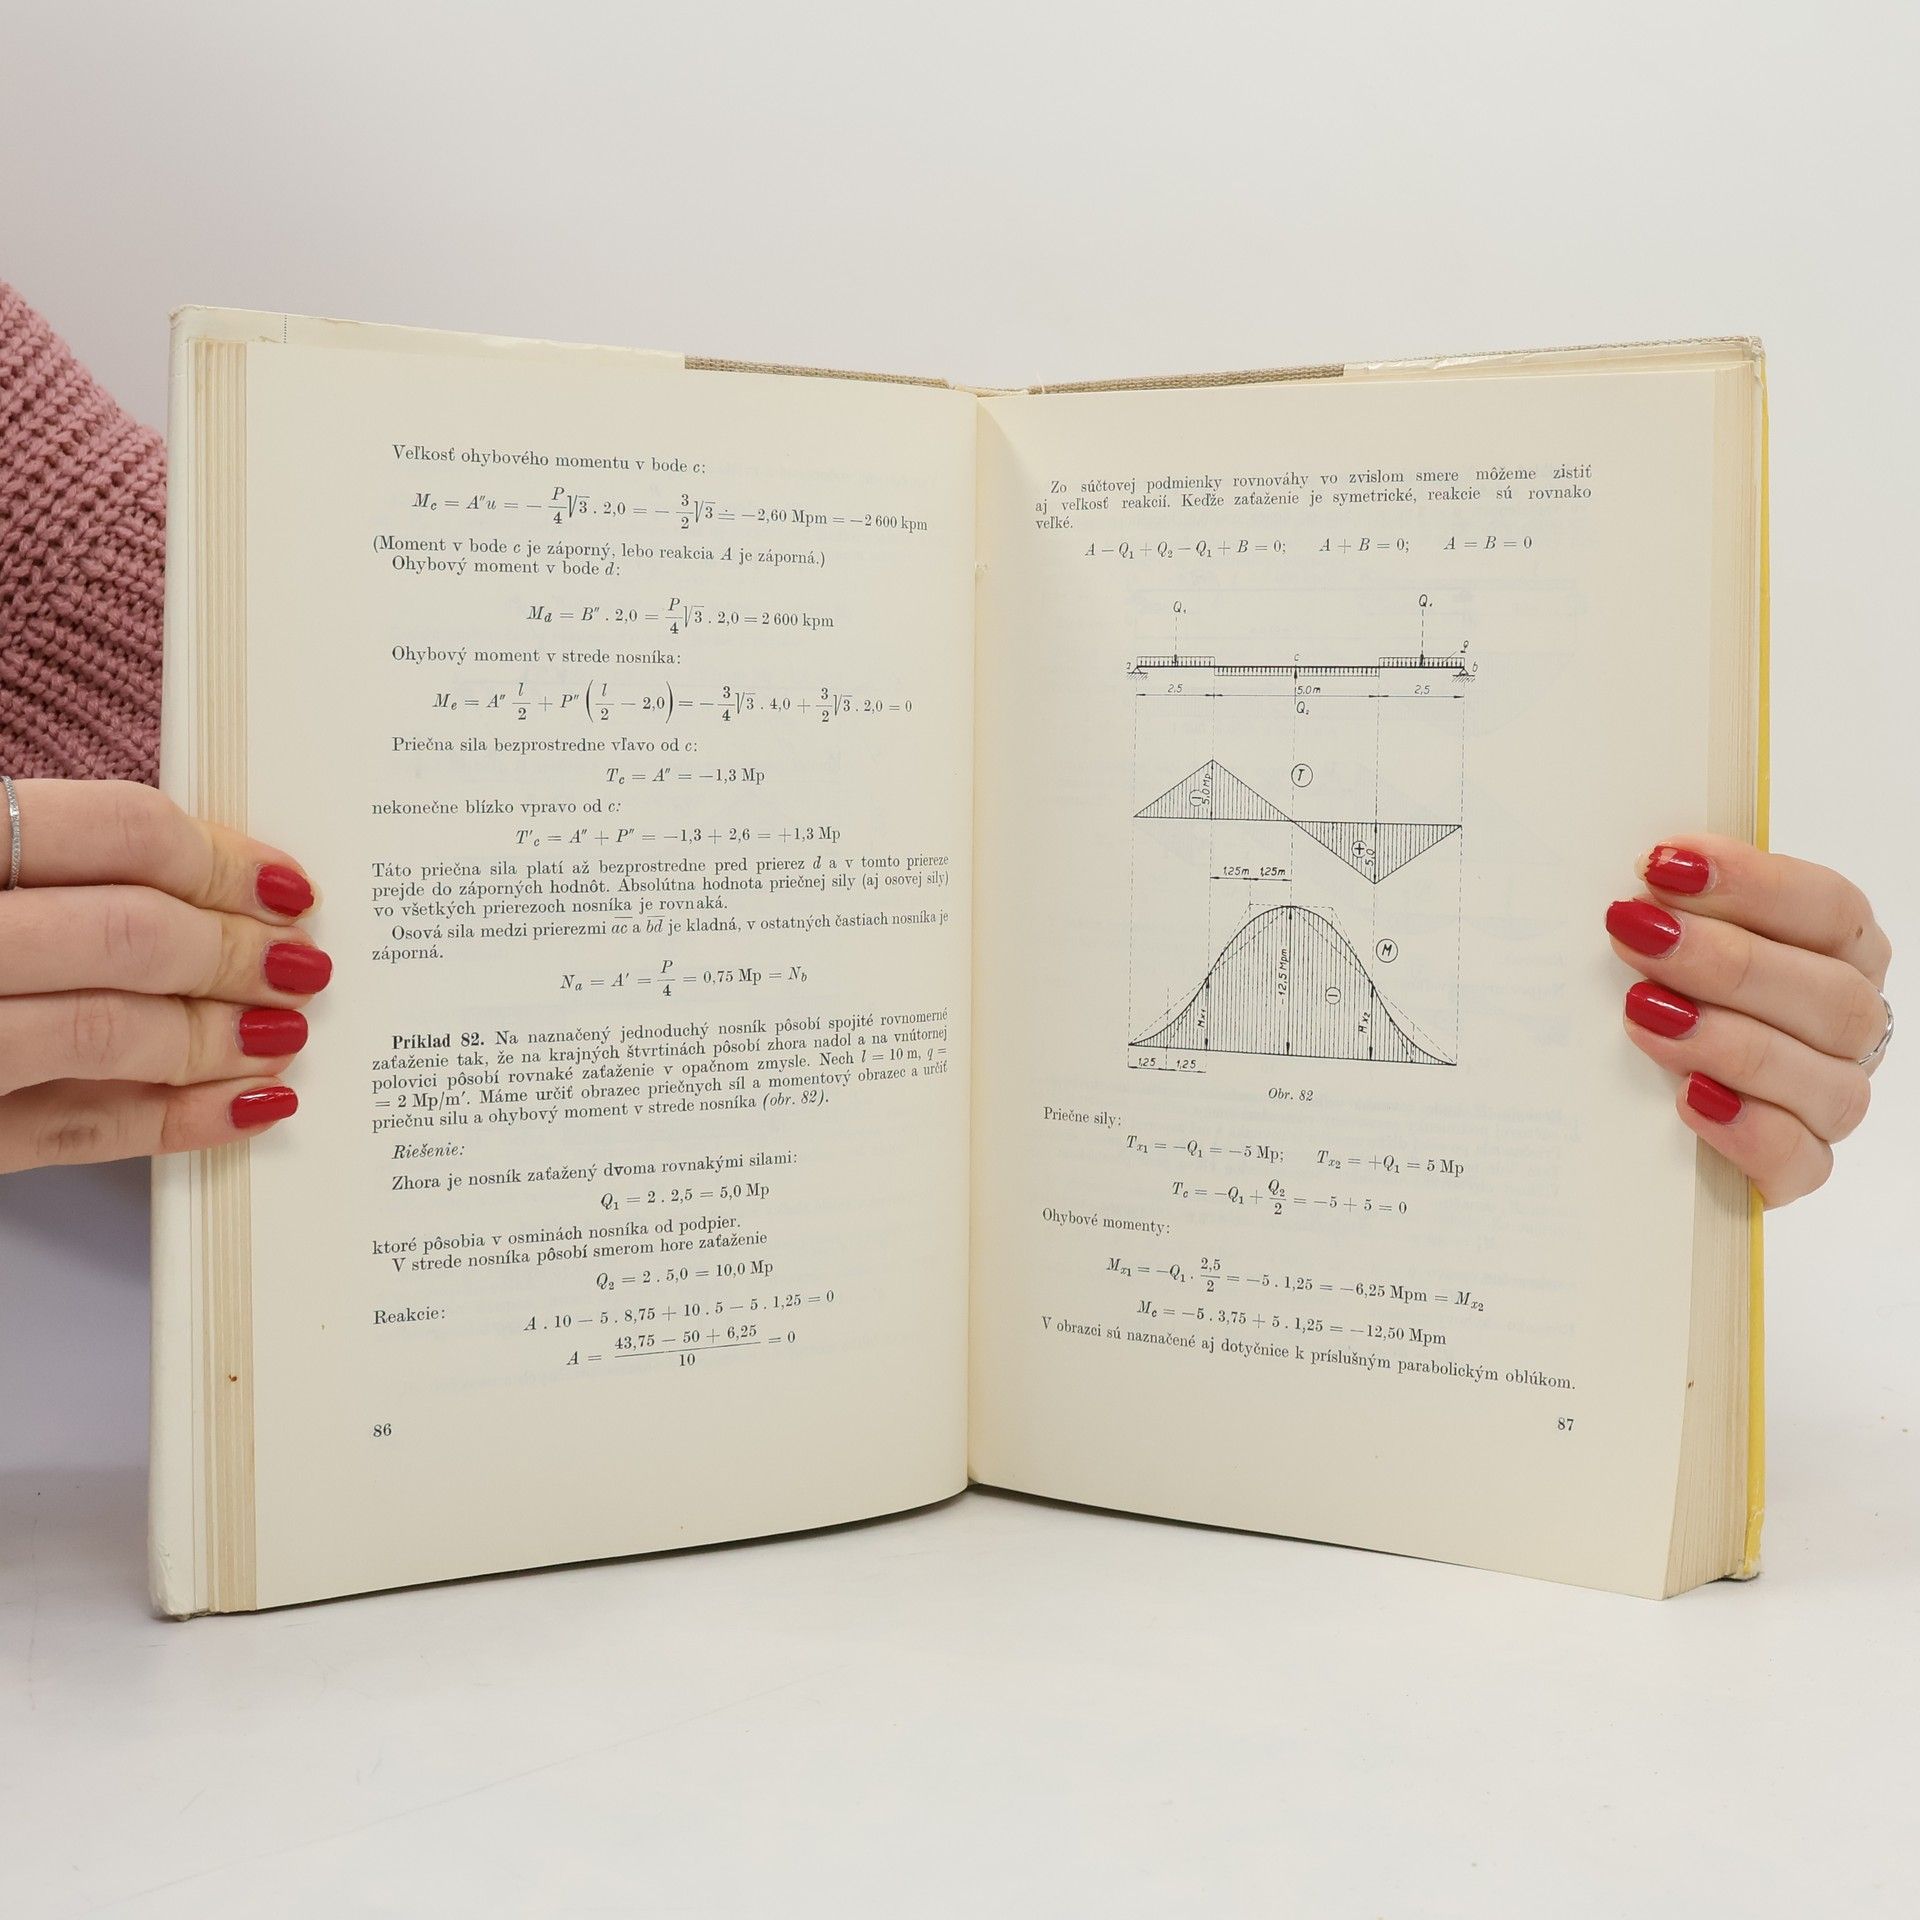 Veľkosť ohybového momentu v bode c:
M_c = A″u = − P/4 √3 . 2,0 = − 3/2 √3 ≐ −2,60 Mpm = −2 600 kpm
(Moment v bode c je záporný, lebo reakcia A je záporná.)
Ohybový moment v bode d:
M_d = B″ . 2,0 = P/4 √3 . 2,0 = 2 600 kpm
Ohybový moment v strede nosníka:
M_e = A″ l/2 + P″ (l/2 − 2,0) = − 3/4 √3 . 4,0 + 3/2 √3 . 2,0 = 0
Priečna sila bezprostredne vľavo od c:
T_c = A″ = −1,3 Mp
nekonečne blízko vpravo od c:
T′_c = A″ + P″ = −1,3 + 2,6 = +1,3 Mp
Táto priečna sila platí až bezprostredne pred prierez d a v tomto priereze
prejde do záporných hodnôt. Absolútna hodnota priečnej sily (aj osovej sily)
vo všetkých prierezoch nosníka je rovnaká.
Osová sila medzi prierezmi ac a bd je kladná, v ostatných častiach nosníka je
záporná.
N_a = A′ = P/4 = 0,75 Mp = N_b
Príklad 82. Na naznačený jednoduchý nosník pôsobí spojité rovnomerné
zaťaženie tak, že na krajných štvrtinách pôsobí zhora nadol a na vnútornej
polovici pôsobí rovnaké zaťaženie v opačnom zmysle. Nech l = 10 m, q =
= 2 Mp/m′. Máme určiť obrazec priečnych síl a momentový obrazec a určiť
priečnu silu a ohybový moment v strede nosníka (obr. 82).
Riešenie:
Zhora je nosník zaťažený dvoma rovnakými silami:
Q_1 = 2 . 2,5 = 5,0 Mp
ktoré pôsobia v osminách nosníka od podpier.
V strede nosníka pôsobí smerom hore zaťaženie
Q_2 = 2 . 5,0 = 10,0 Mp
Reakcie:
A . 10 − 5 . 8,75 + 10 . 5 − 5 . 1,25 = 0
A = (43,75 − 50 + 6,25)/10 = 0
86
Zo súčtovej podmienky rovnováhy vo zvislom smere môžeme zistiť
aj veľkosť reakcií. Keďže zaťaženie je symetrické, reakcie sú rovnako
veľké.
A − Q_1 + Q_2 − Q_1 + B = 0; A + B = 0; A = B = 0
Q₁ Q₁
a c q b
2,5 5,0m 2,5
Q₂
5,0 Mp T
+ 5,0
1,25m 1,25m
M
Mx₁ −12,5 Mpm Mx₂
1,25 1,25
Obr. 82
Priečne sily:
T_x1 = −Q_1 = −5 Mp; T_x2 = +Q_1 = 5 Mp
T_c = −Q_1 + Q_2/2 = −5 + 5 = 0
Ohybové momenty:
M_x1 = −Q_1 . 2,5/2 = −5 . 1,25 = −6,25 Mpm = M_x2
M_c = −5 . 3,75 + 5 . 1,25 = −12,50 Mpm
V obrazci sú naznačené aj dotyčnice k príslušným parabolickým oblúkom.
87